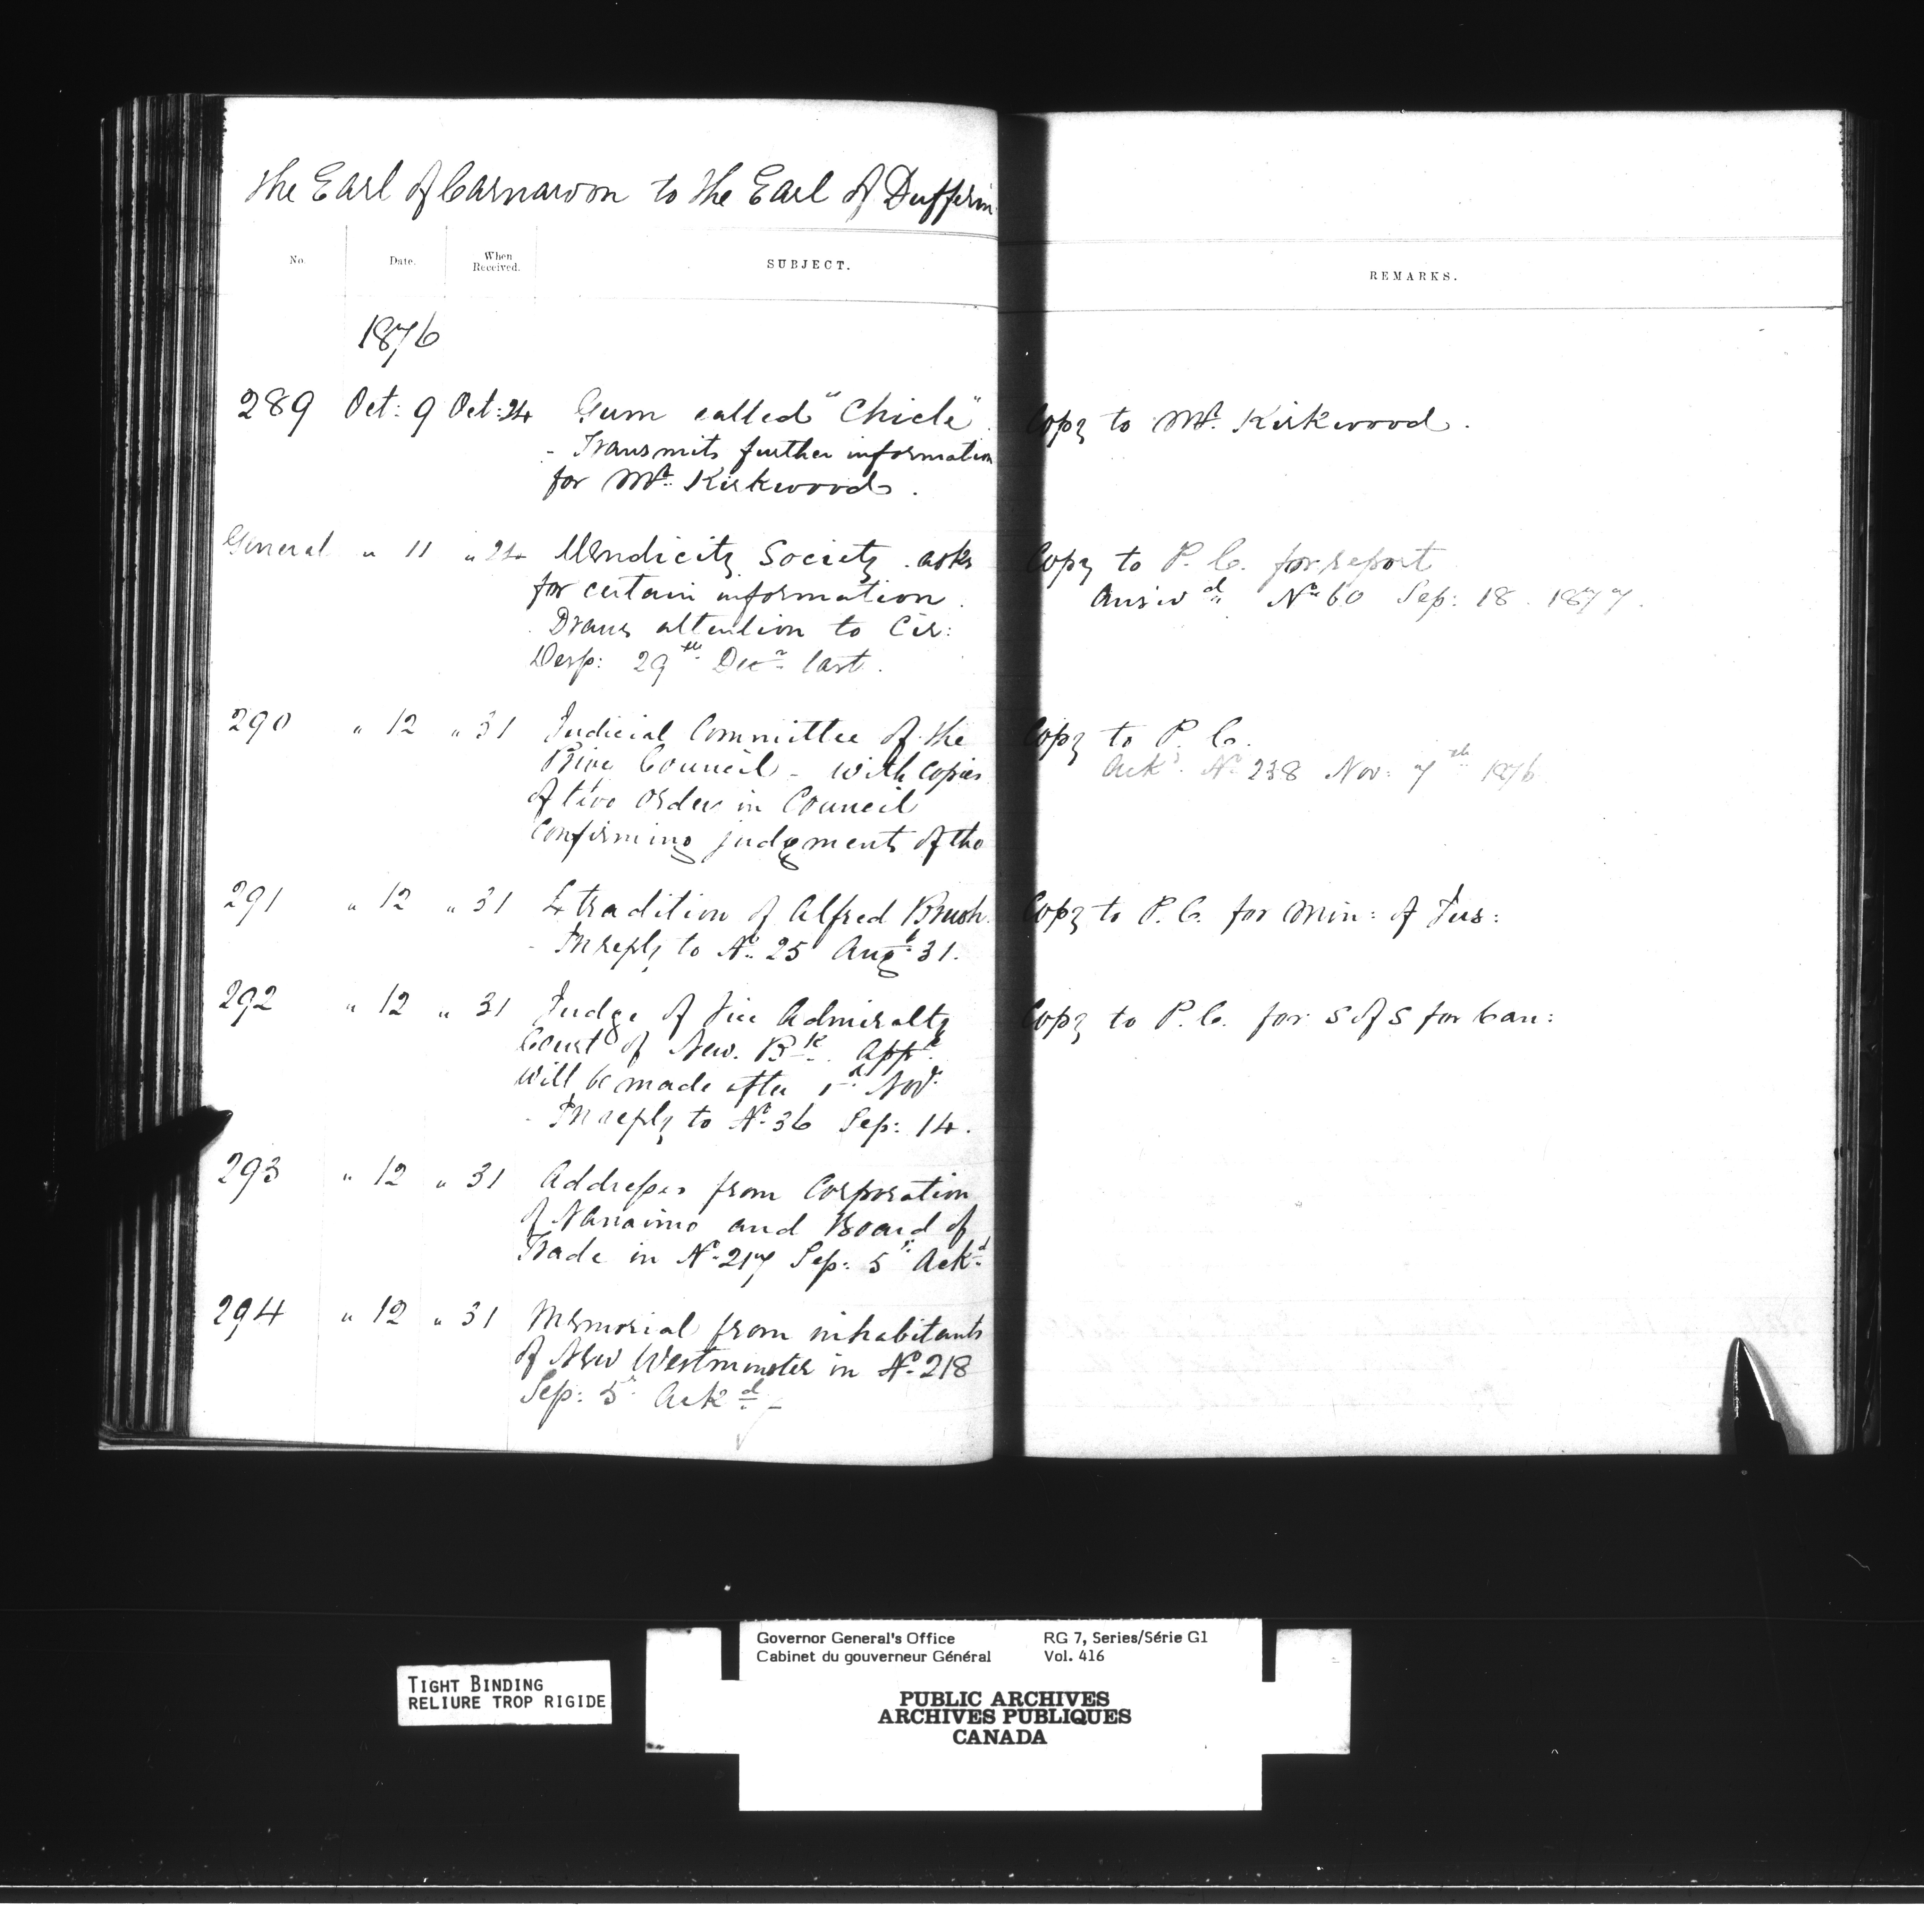 The Earl of Carnarvon to the Earl of Dufferin
No. Date. When Received. SUBJECT. REMARKS.
1876
289 Oct: 9 Oct: 24 Gum called "Chicle". Copy to Mr. Kirkwood.
- Transmits further information
for Mr. Kirkwood.
General " 11 " 24 Mendicity Society. asks Copy to P. C. for report
for certain information. Answd. No 60 Sep: 18. 1877.
Draws attention to Cir:
Desp: 29th Decr last.
290 " 12 " 31 Judicial Committee of the Copy to P. C.
Privy Council - with copies Ackd. No 238 Nov: 7th 1876
of two Order in Council
confirming judgments of the
291 " 12 " 31 Extradition of Alfred Brush. Copy to P. C. for Min: of Jus:
- In reply to No 25 Augt 31.
292 " 12 " 31 Judge of Vice Admiralty Copy to P. C. for S of S for Can:
Court of New. Bk. Appt
will be made after 1st Novr
- In reply to No 36 Sep: 14.
293 " 12 " 31 Addresses from Corporation
of Nanaimo and Board of
Trade in No 217 Sep: 5 Ackd
294 " 12 " 31 Memorial from inhabitants
of New Westminster in No 218
Sep: 5 Ackd -
TIGHT BINDING
RELIURE TROP RIGIDE
Governor General's Office RG 7, Series/Série G1
Cabinet du gouverneur Général Vol. 416
PUBLIC ARCHIVES
ARCHIVES PUBLIQUES
CANADA